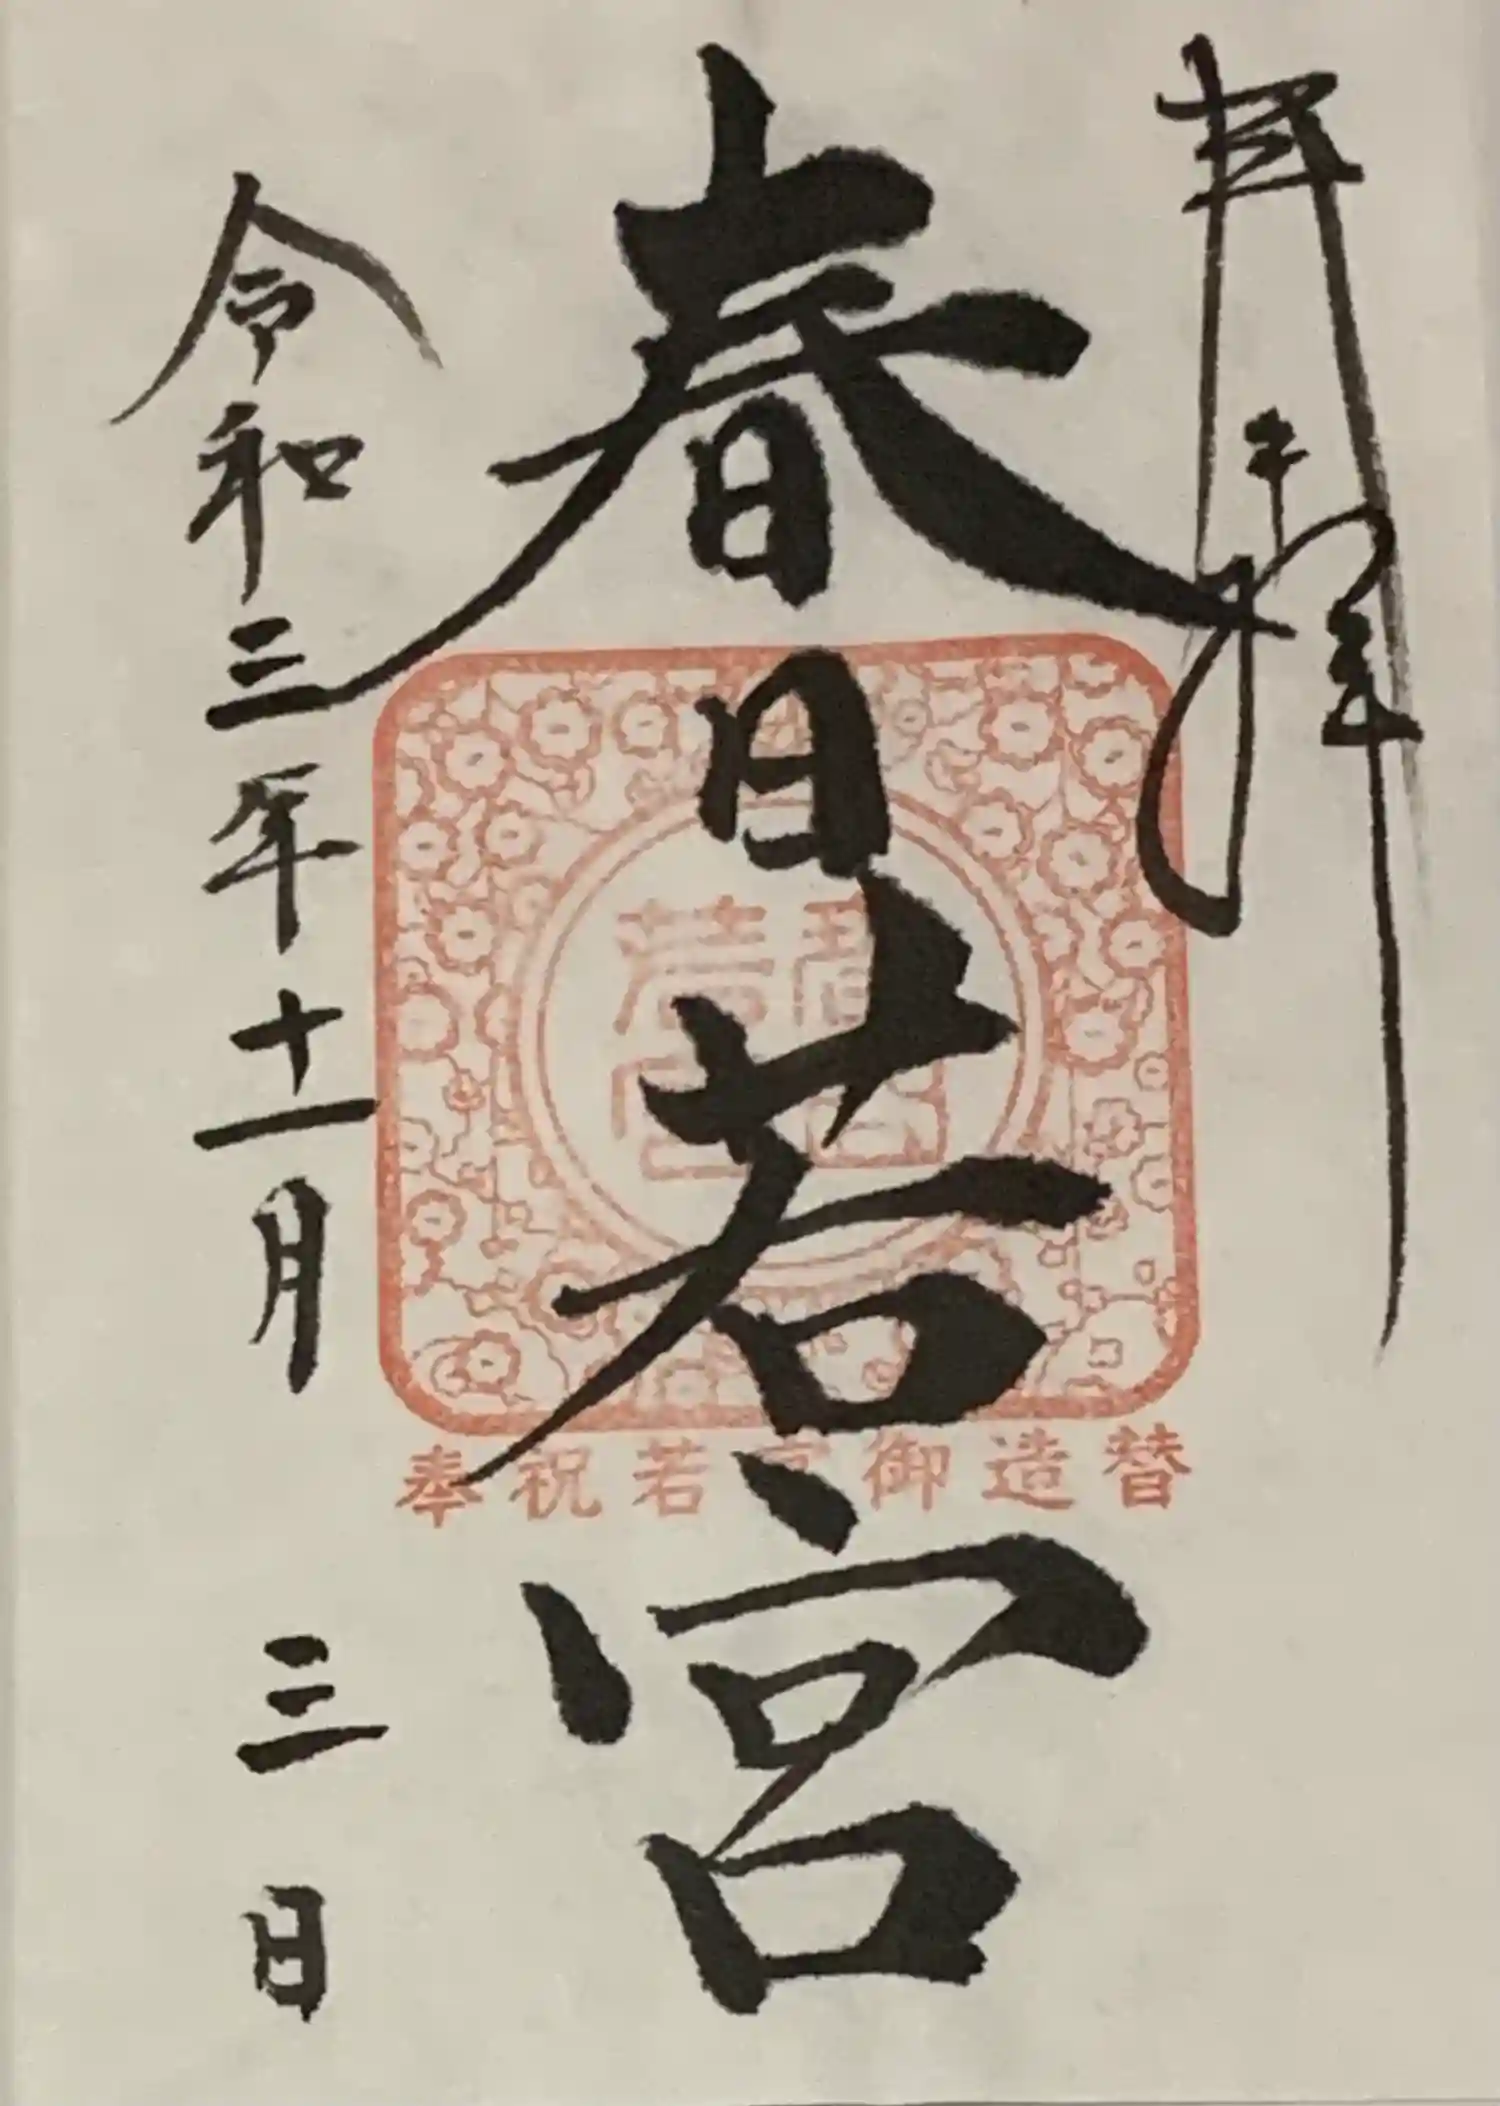 奉拝
春日若宮
春日
若宮
奉祝若宮御造替
令和三年十一月三日